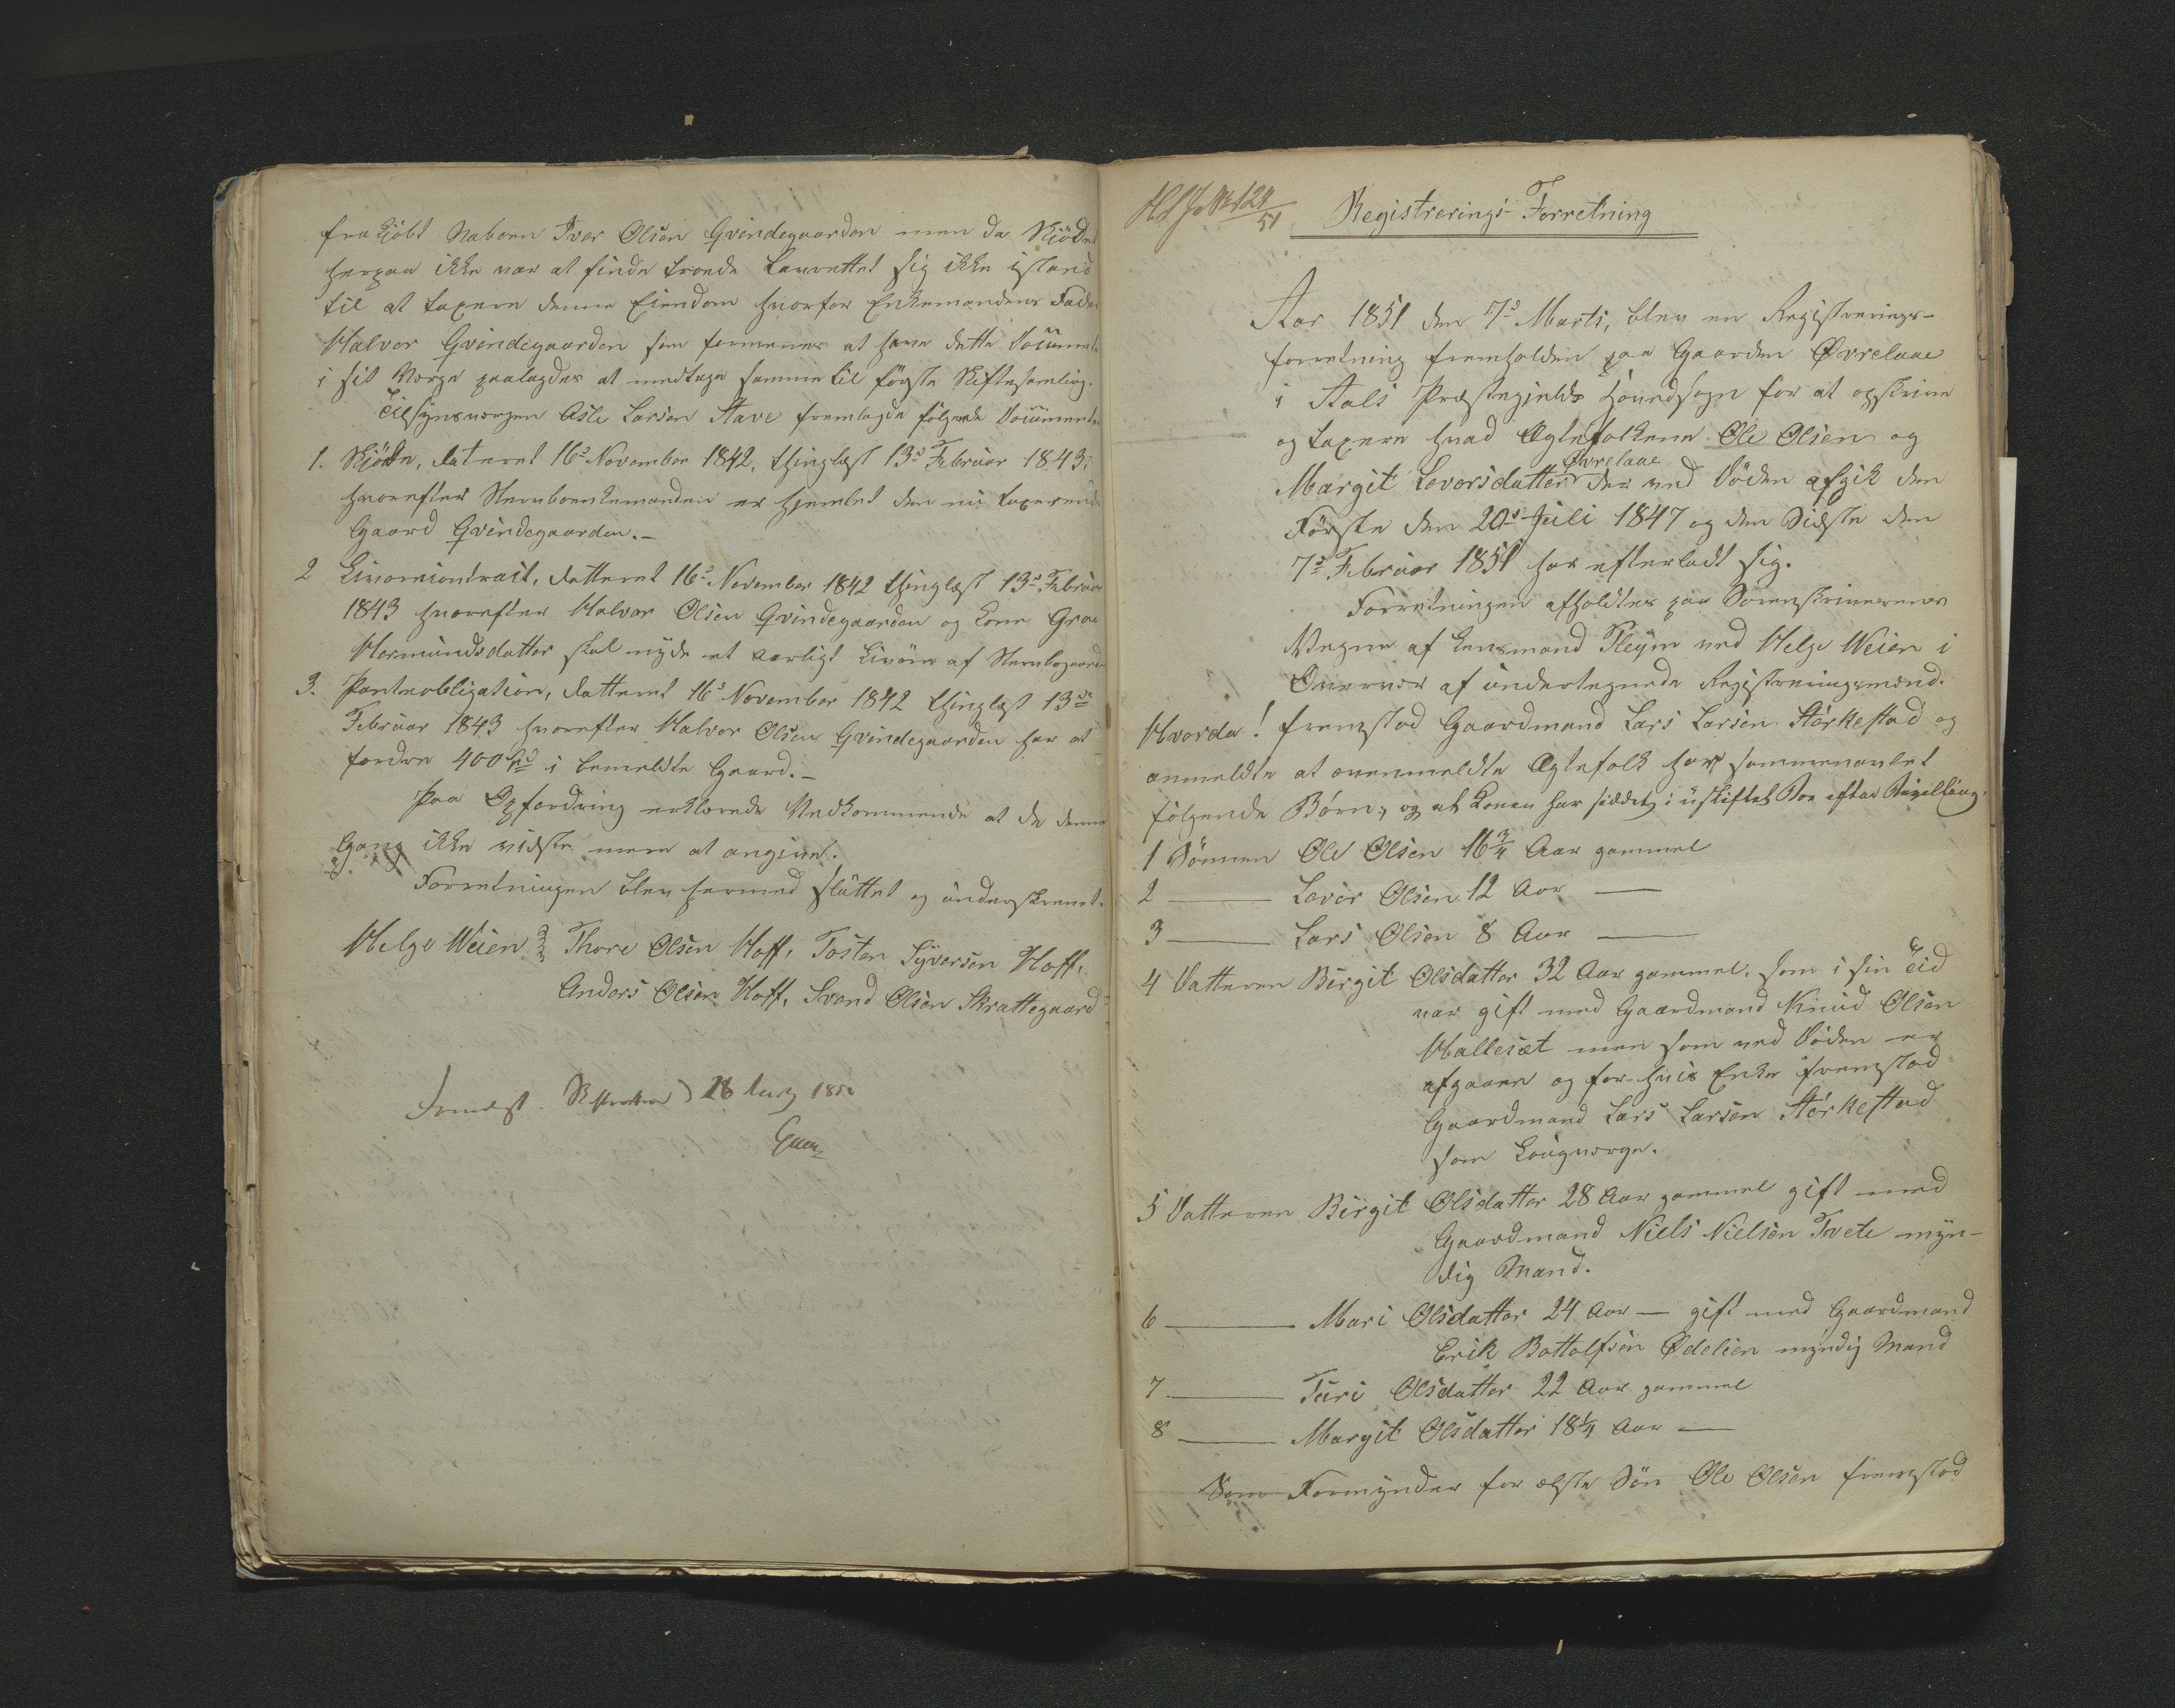 frakjöbt Naboen Iver Olsen Qvindegaarden men da Skjödet
herpaa ikke var at finde troede Lavrettet sig ikke istand
til at taxere denne Eiendom hvorfor Enkemandens Fader
Halvor Qvindegaarden som formenes at have dette Document
i sit Værge paalagdes at medtage samme til første Skiftesamling.
Tilsynsværgen Asle Larsen Stave fremlagde følgende Documenter
1. Skjöde, dateret 16d November 1842, thinglæst 13d Februar 1843,
hvorefter Stervboenkemanden er hjemlet den nu taxerende
Gaard Qvindegaarden.-
2 Livörecontract, datteret 16d November 1842 thinglæst 13d Februar
1843 hvorefter Halvor Olsen Qvindegaarden og Kone Groe
Hermundsdatter skal nyde et aarligt Livöre af Stervbogaarden
3. Panteobligation, datteret 16d November 1842 thinglæst 13de
Februar 1843 hvorefter Halvor Olsen Qvindegaarden har at
fordre 400 Spd i bemeldte Gaard.-
Paa Opfordring erklærede Vedkommende at de denne
Gang ikke vidste mere at angive.
Forretningen blev hermed sluttet og underskrevet.
Helge Weien. Thore Olsen Hoff, Tosten Syversen Hoff,
Anders Olsen Hoff, Svend Olsen Skrattegaard
18
No 124/51
Registrerings-Forretning
Aar 1851 den 7d Marts, blev en Registrerings-
forretning fremholden paa Gaarden Øvrelaae
i Aals Præstegjelds Hovedsogn for at opskrive
og taxere hvad Ægtefolkene Ole Olsen og
Margit Levorsdatter Øvrelaae der ved Döden afgik den
Første den 20d Juli 1847 og den Sidste den
7d Februar 1851 har efterladt sig.
Forretningen afholdtes paa Sorenskriverens
Vegne af Lensmand Fleym ved Helge Weien i
Overvær af undertegnede Registreringsmænd.
Hvorda! fremstod Gaardmand Lars Larsen Störkestad og
anmeldte at ovenmeldte Ægtefolk har sammenavlet
følgende Børn, og at Konen har siddet i uskiftet Boe efter Bevilling.
1 Sönnen Ole Olsen 16 3/4 Aar gammel
2 — Levor Olsen 12 Aar —
3 — Lars Olsen 8 Aar —
4 Datteren Birgit Olsdatter 32 Aar gammel, som i sin Tid
var gift med Gaardmand Knud Olsen
Hallesæt men som ved Döden er
afgaaen og for hvis Enke fremstod
Gaardmand Lars Larsen Störkestad
som Laugværge.
5 Datteren Birgit Olsdatter 28 Aar gammel gift med
Gaardmand Niels Nielsen Tvete myn-
dig Mand.
6 — Mari Olsdatter 24 Aar — gift med Gaardmand
Erik Bottolfsen Ødelien myndig Mand
7 — Turi Olsdatter 22 Aar gammel
8 — Margit Olsdatter 18 1/4 Aar —
Som Formynder for ælste Sön Ole Olsen fremstod